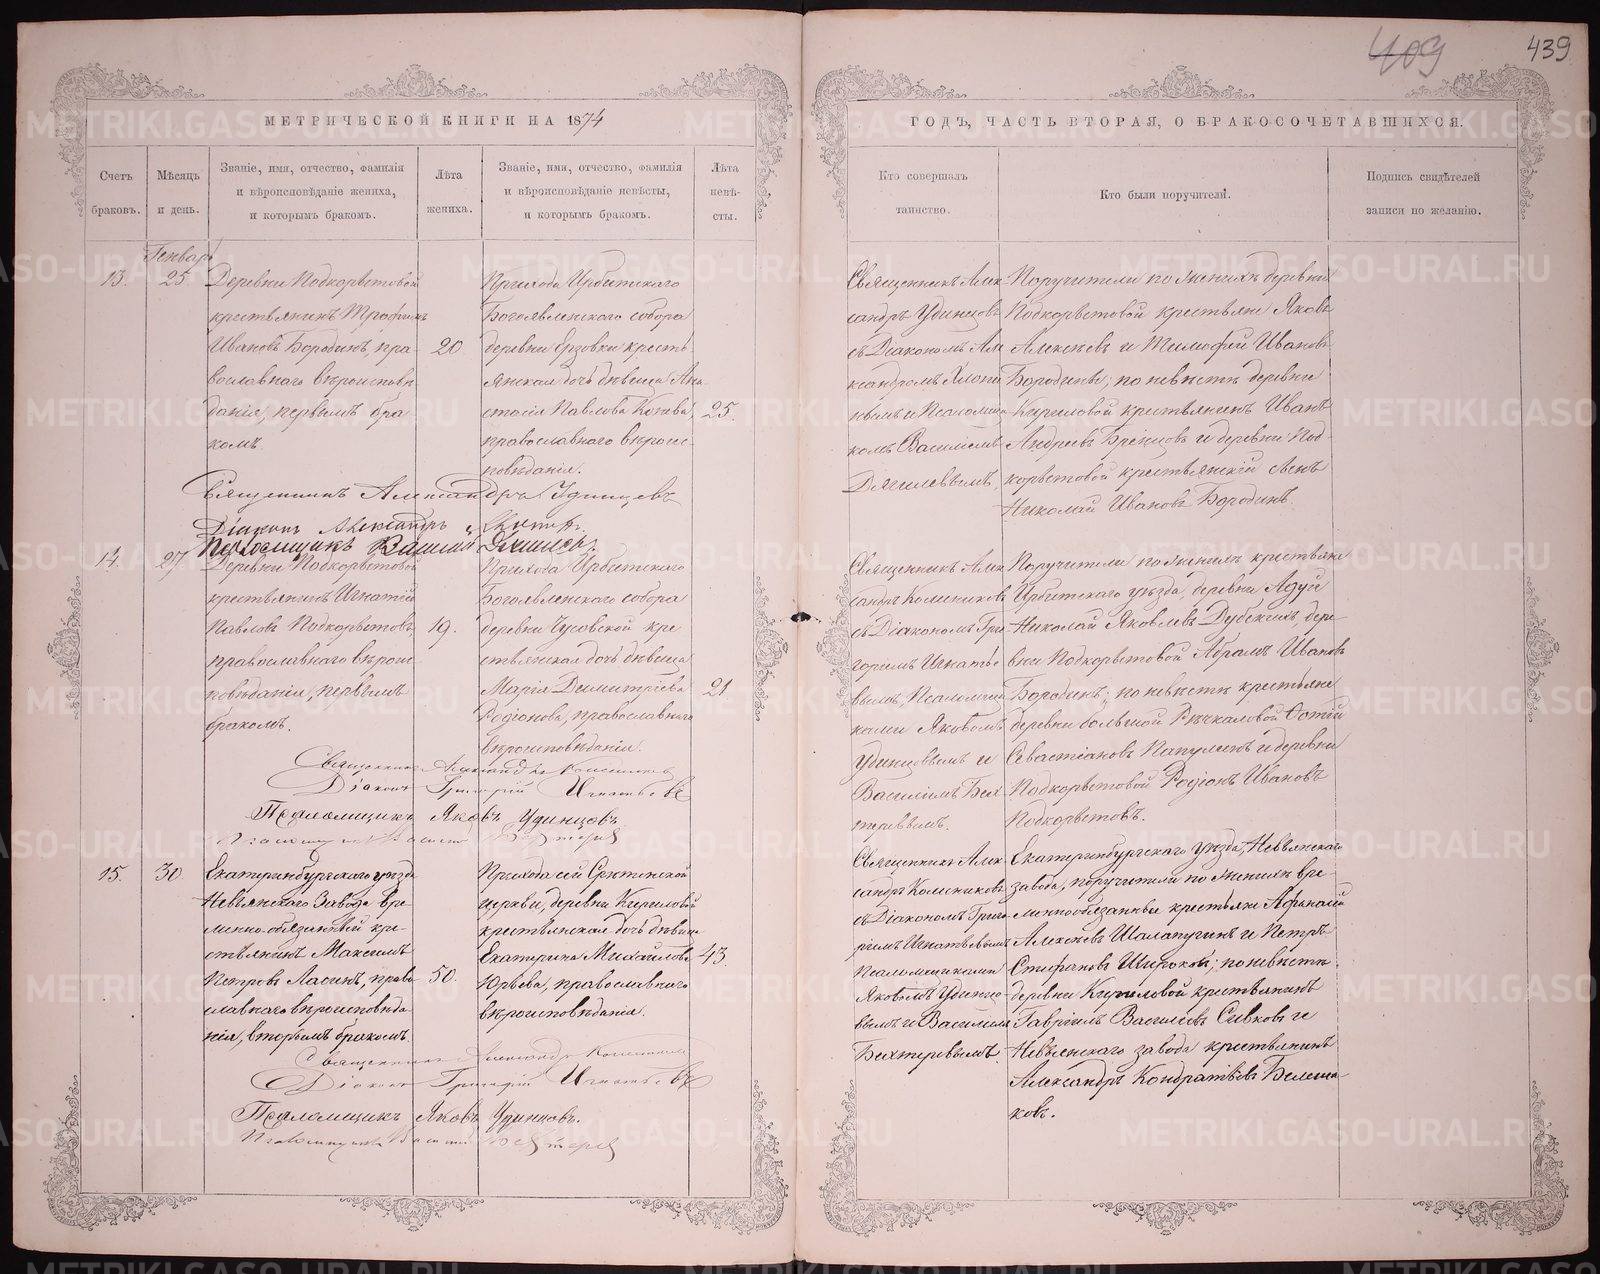 409
439
МЕТРИЧЕСКОЙ КНИГИ НА 1874
ГОДЪ, ЧАСТЬ ВТОРАЯ, О БРАКОСОЧЕТАВШИХСЯ.
Счетъ
браковъ.
Мѣсяцъ
и день.
Званіе, имя, отчество, фамилія
и вѣроисповѣданіе жениха,
и которымъ бракомъ.
Лѣта
жениха.
Званіе, имя, отчество, фамилія
и вѣроисповѣданіе невѣсты,
и которымъ бракомъ.
Лѣта
невѣ-
сты.
Кто совершалъ
таинство.
Кто были поручители.
Подпись свидѣтелей
записи по желанію.
Генварь
13.
25
Деревни Подкорытовой
крестьянинъ Трофимъ
Ивановъ Бородинъ, пра-
вославнаго вѣроисповѣ
данія, первымъ бра
комъ.
20
Прихода Ирбитскаго
Богоявленскаго собора
деревни Ерзовки кресть-
янская дочь дѣвица Ана-
стасія Павлова
православнаго вѣроис-
повѣданія.
25.
Священникъ Алек
сандръ Удинцовъ
съ Діакономъ Ал
ександромъ
и Псаломщи
комъ Василіемъ
Поручители по женихѣ деревни
Подкорытовой крестьяне Яковъ
Алексѣевъ и Тимофей Ивановъ
Бородины; по невѣстѣ деревни
Кириловой крестьянинъ Иванъ
Андреевъ и деревни Под-
корытовой крестьянскій сынъ
Николай Ивановъ Бородинъ.
Священникъ Александръ Удинцевъ
Діаконъ Александръ
Псаломщикъ Василій
14.
27
Деревни Подкорытовой
крестьянинъ Игнатій
Павловъ Подкорытовъ,
православнаго вѣроис-
повѣданія, первымъ
бракомъ.
19.
Прихода Ирбитскаго
Богоявленскаго собора
деревни Чусовской кре
стьянская дочь дѣвица
Марія Димитріева
Родіонова, православнаго
вѣроисповѣданія.
21
Священникъ Алек
сандръ Колесниковъ
съ Діакономъ Гри
горіемъ Игнатье
вымъ, Псаломщи
ками Яковомъ
Удинцовымъ и
Василіемъ Бех
теревымъ.
Поручители по женихѣ крестьяне
Ирбитскаго уѣзда, деревни
Николай Яковлевъ Дубскихъ, дере-
вни Подкорытовой Абрамъ Ивановъ
Бородинъ; по невѣстѣ крестьяне
деревни большой Речкаловой
Севастіановъ и деревни
Подкорытовой Родіонъ Ивановъ
Подкорытовъ.
Священникъ Александръ Колесниковъ
Діаконъ Григорій Игнатьевъ
Псаломщикъ Яковъ Удинцовъ
15.
30
Екатеринбургскаго уѣзда
Невьянскаго Завода вре-
менно-обязанный кре-
стьянинъ Максимъ
Петровъ Ласинъ, право-
славнаго вѣроисповѣда-
нія, вторымъ бракомъ.
50.
Прихода сей Срѣтенской
церкви, деревни Кириловой
крестьянская дочь дѣвица
Екатерина Михайлова
Юрьева, православнаго
вѣроисповѣданія.
43.
Священникъ Алек-
сандръ Колесниковъ
съ Діакономъ Григо-
ріемъ Игнатьевымъ
Псаломщиками
Яковомъ Удинцо-
вымъ и Василіемъ
Бехтеревымъ.
Екатеринбургскаго уѣзда, Невьянскаго
завода, поручители по женихѣ вре-
меннообязанные крестьяне Афанасій
Алексѣевъ Шалапугинъ и Петръ
Стефановъ Широкой; по невѣстѣ:
деревни Кириловой крестьянинъ
Гавріилъ Василіевъ Сивковъ и
Невьянскаго завода крестьянинъ
Александръ Кондратьевъ
ковъ.
Священникъ Александръ Колесниковъ
Діаконъ Григорій Игнатьевъ
Псаломщикъ Яковъ Удинцовъ.
Псаломщикъ Василій Бехтерев